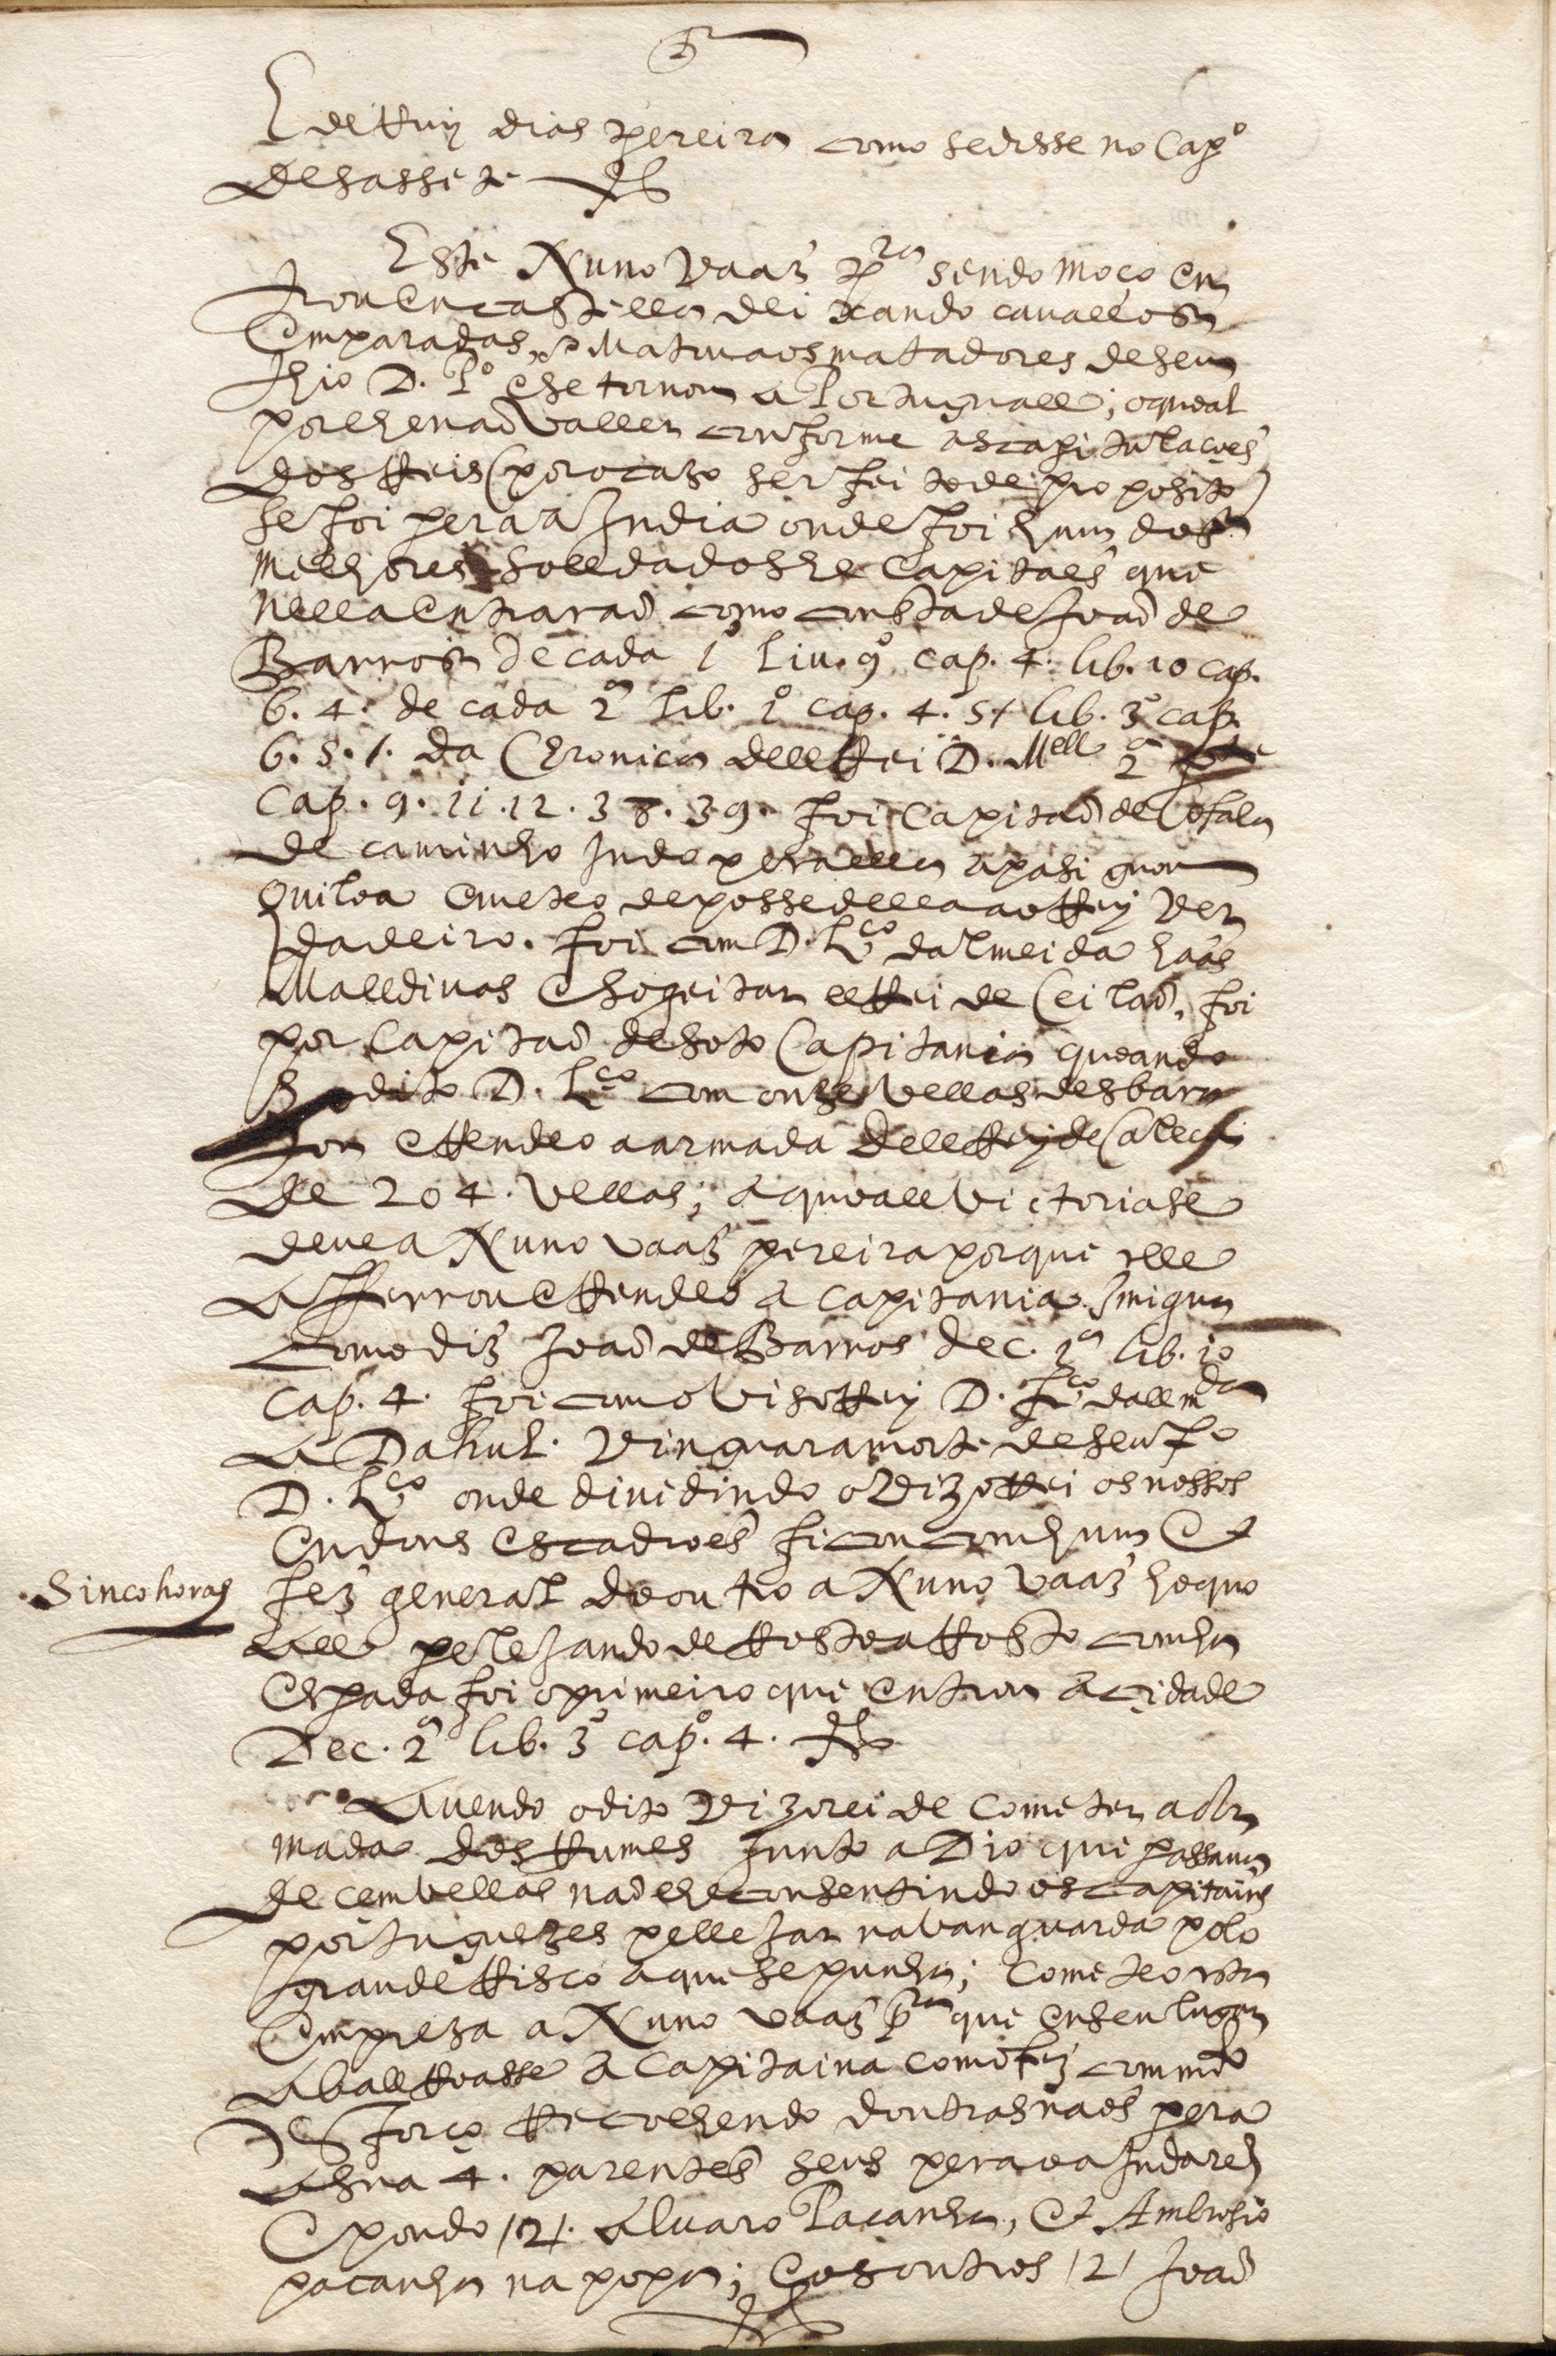 E de Ruy dias pereira como se disse no Capº
desassete
Este Nuno Vaaz Pra sendo moço en
trou en castella deixando cavallos
emparadas, matou aos matadores de seu
thio D. Pº e se tornou a Portuguall; o qual
por lhe não valler conforme as capitulações
dos Reis (por o cazo ser feito de proposito)
se foi pera a India onde foi hum dos
melhores solldados he Capitaes que
nella entrarão como consta de João de
Barros Decada 1ª Liu. 9º cap. 4. lib. 10 cap.
6. 4. decada 2ª lib. 1º cap. 4. 5. lib. 3º cap.
6. 5. 1. da Chronica dell Rei D. Mell 2ª pte
Cap. 9. 11. 12. 38. 39. foi Capitão de Cofala
de caminho indo pera ella apasiguou
Quiloa e meteo de posse della ao Rey ver
dadeiro. foi com D. Lço dalmeida haas
Malldivas e sogeitar ell Rei de Ceilão, foi
por Capitão de soto Capitania quando
o dito D. Lço com onze vellas desbara
tou e Rendeo a armada dell Rey de Calecu
de 204. vellas; a quall victoria se
deve a Nuno vaaz pereira porque elle
afferrou e Rendeo a capitania imigua
como diz João de Barros dec. 1ª lib. 10
cap. 4. foi com o Viso Rey D. Frco dallmda
a Dabul. Vinguar a morte de seu fº
D. Lço onde dividindo o Vizo Rei os nossos
en dous escadroes ficou com hum e
fez general do outro a Nuno Vaaz ho quo
all pelejando de Rosto a Rosto com ha
espada foi o primeiro que entrou a cidade
Dec. 2ª lib. 3º capº. 4.
Sinco horas
Avendo o dito Vizorei de cometer a ar
mada dos Rumes junto a Dio que passava
de cem vellas não lhe consentindo os capitains
portuguezes pellejar na vanguarda polo
grande Risco a que se punha; cometeo esta
empreza a Nuno vaaz Pra que en seu lugar
aballRoasse a capitaina como fez com mto
esforço Recolhendo doutras naos pera
a sua 4. parentes seus pera o ajudarem
e pondo /2/. Alvaro Paçanha, e Ambrosio
paçanha na popa; e os outros /2/ João